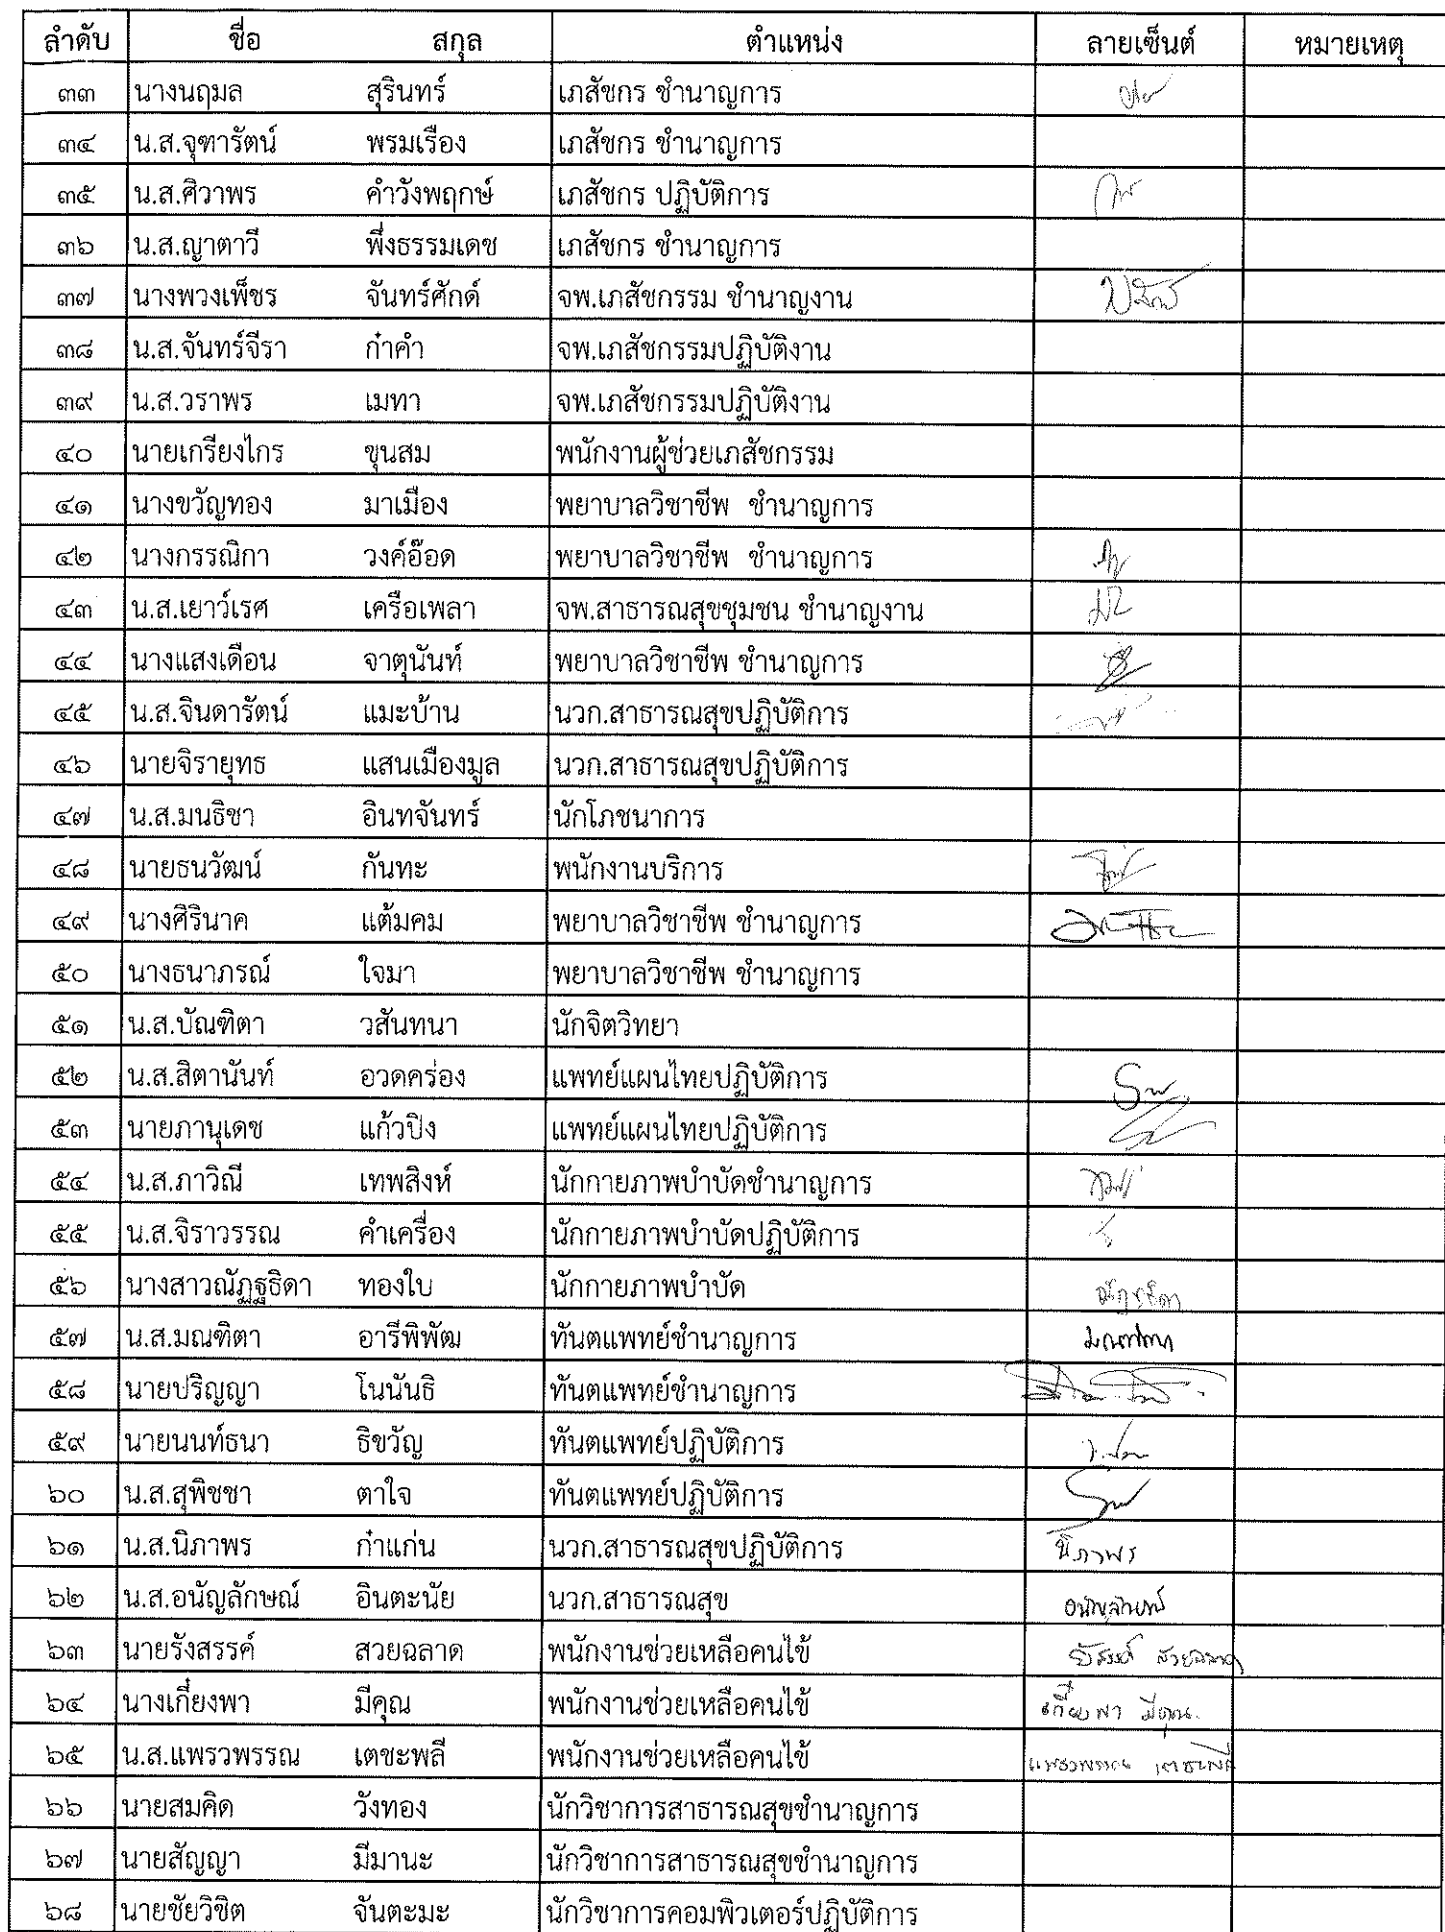 ลำดับ ชื่อ สกุล ตำแหน่ง ลายเซ็นต์ หมายเหตุ
๓๓ นางนฤมล สุรินทร์ เภสัชกร ชำนาญการ
๓๔ น.ส.จุฑารัตน์ พรมเรือง เภสัชกร ชำนาญการ
๓๕ น.ส.ศิวาพร คำวังพฤกษ์ เภสัชกร ปฏิบัติการ
๓๖ น.ส.ญาตาวี พึ่งธรรมเดช เภสัชกร ชำนาญการ
๓๗ นางพวงเพ็ชร จันทร์ศักดิ์ จพ.เภสัชกรรม ชำนาญงาน
๓๘ น.ส.จันทร์จีรา ก๋าคำ จพ.เภสัชกรรมปฏิบัติงาน
๓๙ น.ส.วราพร เมทา จพ.เภสัชกรรมปฏิบัติงาน
๔๐ นายเกรียงไกร ขุนสม พนักงานผู้ช่วยเภสัชกรรม
๔๑ นางขวัญทอง มาเมือง พยาบาลวิชาชีพ ชำนาญการ
๔๒ นางกรรณิกา วงค์อ๊อด พยาบาลวิชาชีพ ชำนาญการ
๔๓ น.ส.เยาว์เรศ เครือเพลา จพ.สาธารณสุขชุมชน ชำนาญงาน
๔๔ นางแสงเดือน จาตุนันท์ พยาบาลวิชาชีพ ชำนาญการ
๔๕ น.ส.จินดารัตน์ แมะบ้าน นวก.สาธารณสุขปฏิบัติการ
๔๖ นายจิรายุทธ แสนเมืองมูล นวก.สาธารณสุขปฏิบัติการ
๔๗ น.ส.มนธิชา อินทจันทร์ นักโภชนาการ
๔๘ นายธนวัฒน์ กันทะ พนักงานบริการ
๔๙ นางศิรินาค แต้มคม พยาบาลวิชาชีพ ชำนาญการ
๕๐ นางธนาภรณ์ ใจมา พยาบาลวิชาชีพ ชำนาญการ
๕๑ น.ส.บัณฑิตา วสันทนา นักจิตวิทยา
๕๒ น.ส.สิตานันท์ อวดคร่อง แพทย์แผนไทยปฏิบัติการ
๕๓ นายภานุเดช แก้วปิง แพทย์แผนไทยปฏิบัติการ
๕๔ น.ส.ภาวิณี เทพสิงห์ นักกายภาพบำบัดชำนาญการ
๕๕ น.ส.จิราวรรณ คำเครื่อง นักกายภาพบำบัดปฏิบัติการ
๕๖ นางสาวณัฏฐธิดา ทองใบ นักกายภาพบำบัด ณัฏฐธิดา
๕๗ น.ส.มณฑิตา อารีพิพัฒ ทันตแพทย์ชำนาญการ มณฑิตา
๕๘ นายปริญญา โนนันธิ ทันตแพทย์ชำนาญการ
๕๙ นายนนท์ธนา ธิขวัญ ทันตแพทย์ปฏิบัติการ
๖๐ น.ส.สุพิชชา ตาใจ ทันตแพทย์ปฏิบัติการ
๖๑ น.ส.นิภาพร ก๋าแก่น นวก.สาธารณสุขปฏิบัติการ นิภาพร
๖๒ น.ส.อนัญลักษณ์ อินตะนัย นวก.สาธารณสุข อนัญลักษณ์
๖๓ นายรังสรรค์ สวยฉลาด พนักงานช่วยเหลือคนไข้ รังสรรค์ สวยฉลาด
๖๔ นางเกี๋ยงพา มีคุณ พนักงานช่วยเหลือคนไข้ เกี๋ยงพา มีคุณ
๖๕ น.ส.แพรวพรรณ เตชะพลี พนักงานช่วยเหลือคนไข้ แพรวพรรณ เตชะพลี
๖๖ นายสมคิด วังทอง นักวิชาการสาธารณสุขชำนาญการ
๖๗ นายสัญญา มีมานะ นักวิชาการสาธารณสุขชำนาญการ
๖๘ นายชัยวิชิต จันตะมะ นักวิชาการคอมพิวเตอร์ปฏิบัติการ